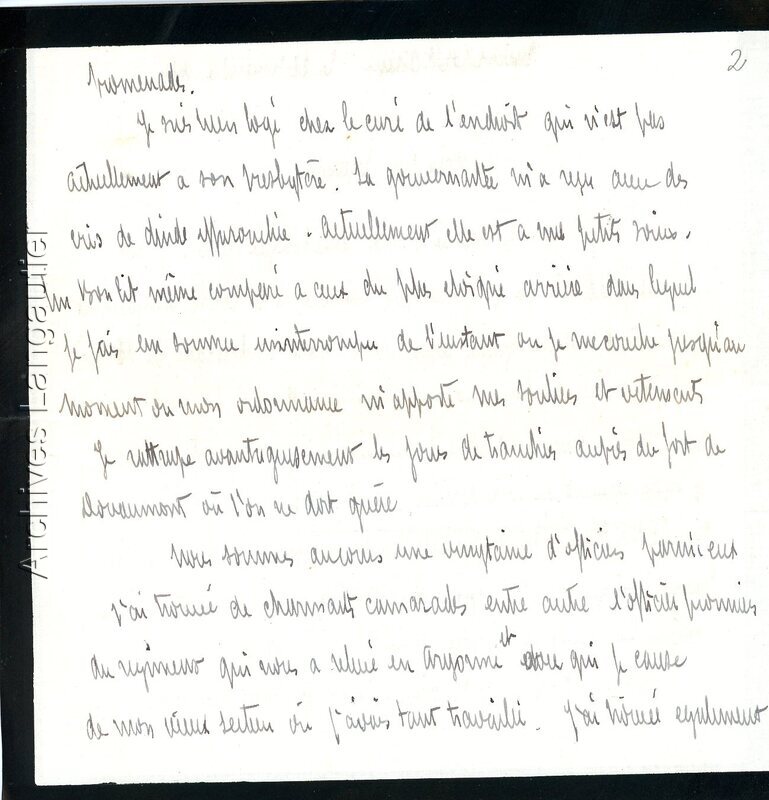 2
promenades.
Je suis bien logé chez le curé de l'endroit qui n'est pas
actuellement a son presbytère. La gouvernante m'a reçu avec des
cris de dinde effarouchée. actuellement elle est a mes petits soins.
Un bon lit même comparé a ceux du plus eloigné arrière dans lequel
je fais un somme ininterrompu de l'instant ou je me couche jusqu'au
moment ou mon ordonnance m'apporte mes souliers et vetements
Je rattrape avantageusement les jours de tranchées auprès du fort de
Douaumont où l'on ne dort guère
Nous sommes encore une vingtaine d'officiers parmi eux
j'ai trouvé de charmants camarades entre autre l'officier pionnier
du regiment qui nous a relevé en Argonne et avec qui je cause
de mon vieux secteur où j'avais tant travaillé. J'ai trouvé egalement
Archives Langautier